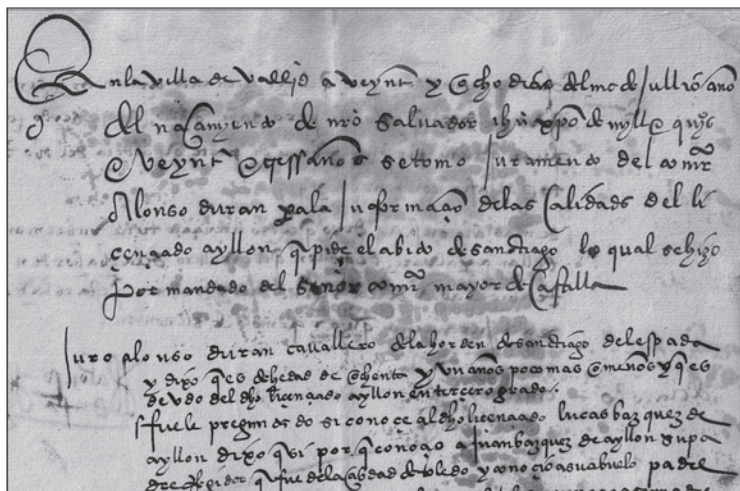 En la villa de vallid a veynte y ocho dias del mes de Jullio año
del nacamyento de nro salvador ihu xpo de myll e quis
e veynte e tres años se tomo Juramento del comr
Alonso duran para la Informaçon de las calidads del li
çençiado ayllon q pide el abito de sanctiago lo qual se hizo
por mandado del señor comr mayor de Castilla
Juro alonso duran cavallero de la horden de sanctiago del espada
y dixo q es de hedad de ochenta y un años poco mas o menos y q es
deudo del dho liçençiado ayllon en terçero grado.
fuele preguntado si conoçe al dho liçençiado lucas bazquez de
ayllon dixo q si por q conoçio a juan bazquez de ayllon su pa
dre Regidor q fue de la çibdad de toledo y conoçio a su abuelo padre